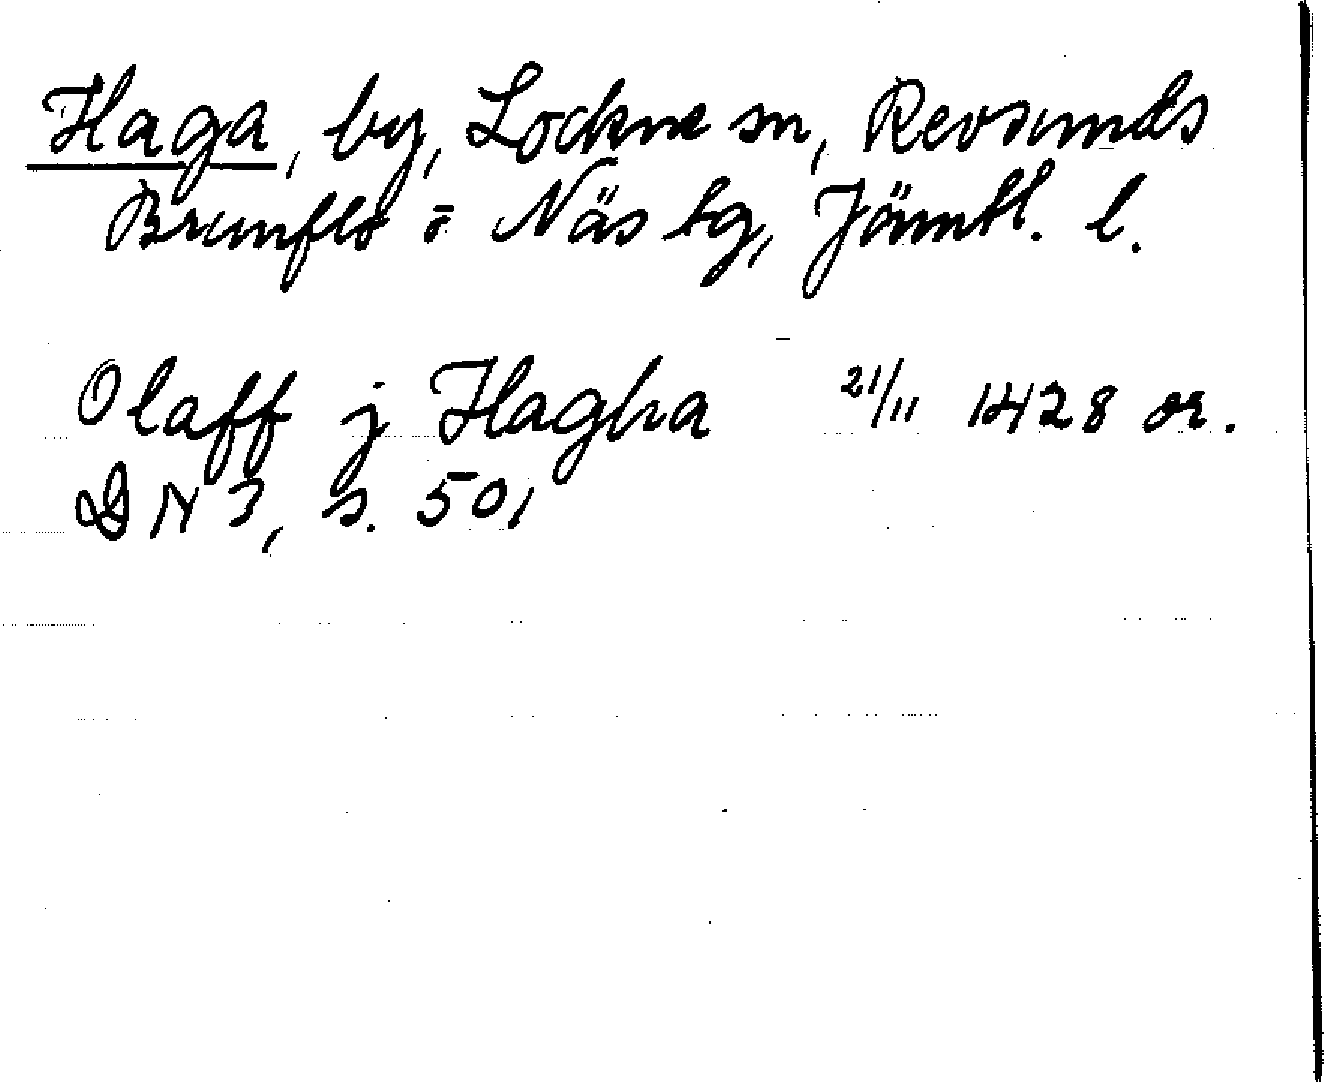 Haga, by, Lockne sn, Revsunds
Brunflo = Näs tg, Jämtl. l.
Olaff j Hagha 21/11 1428 or.
DN 3, s. 501